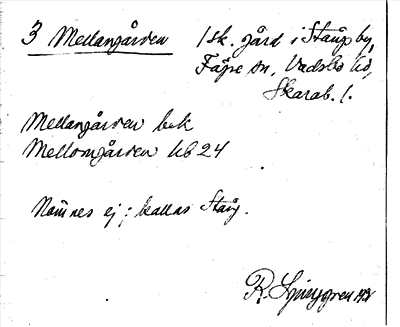 3 Mellangården 1 sk. gård i Stång by,
Fägre sn, Vadsbo hd,
Skarab. l.
Mellangården bek
Mellomgården kb 24
Namnes ej; kallas Stång.
R. Ljunggren